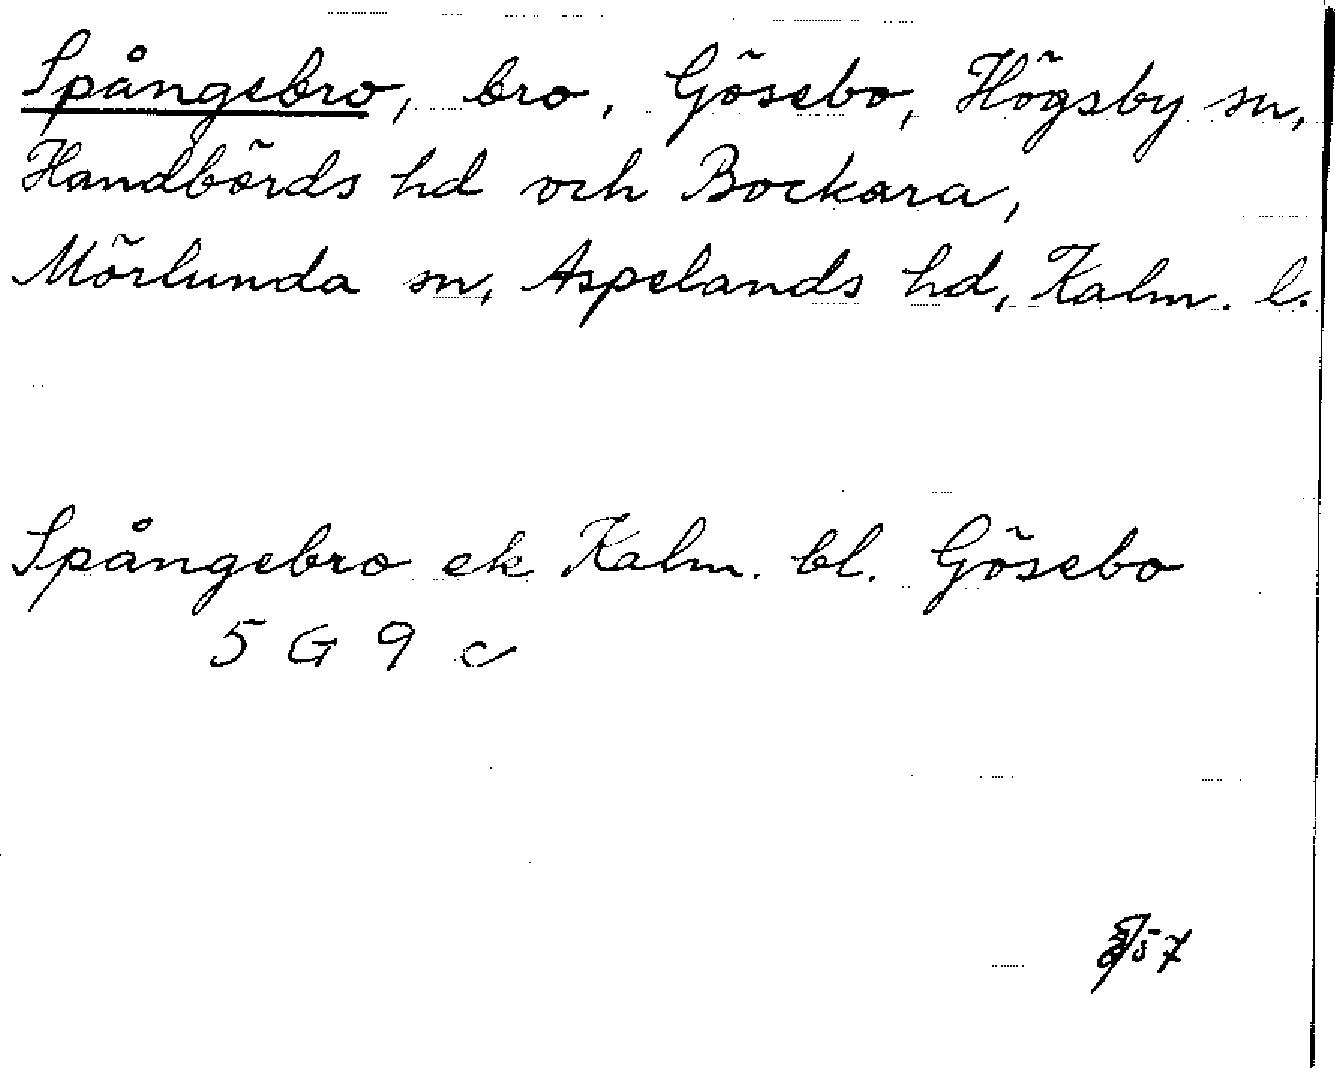 Spångebro, bro, Gösebo, Högsby sn,
Handbörds hd och Bockara,
Mörlunda sn, Aspelands hd, Kalm. l.
Spångebro ek Kalm. bl. Gösebo
5 G 9 c
57